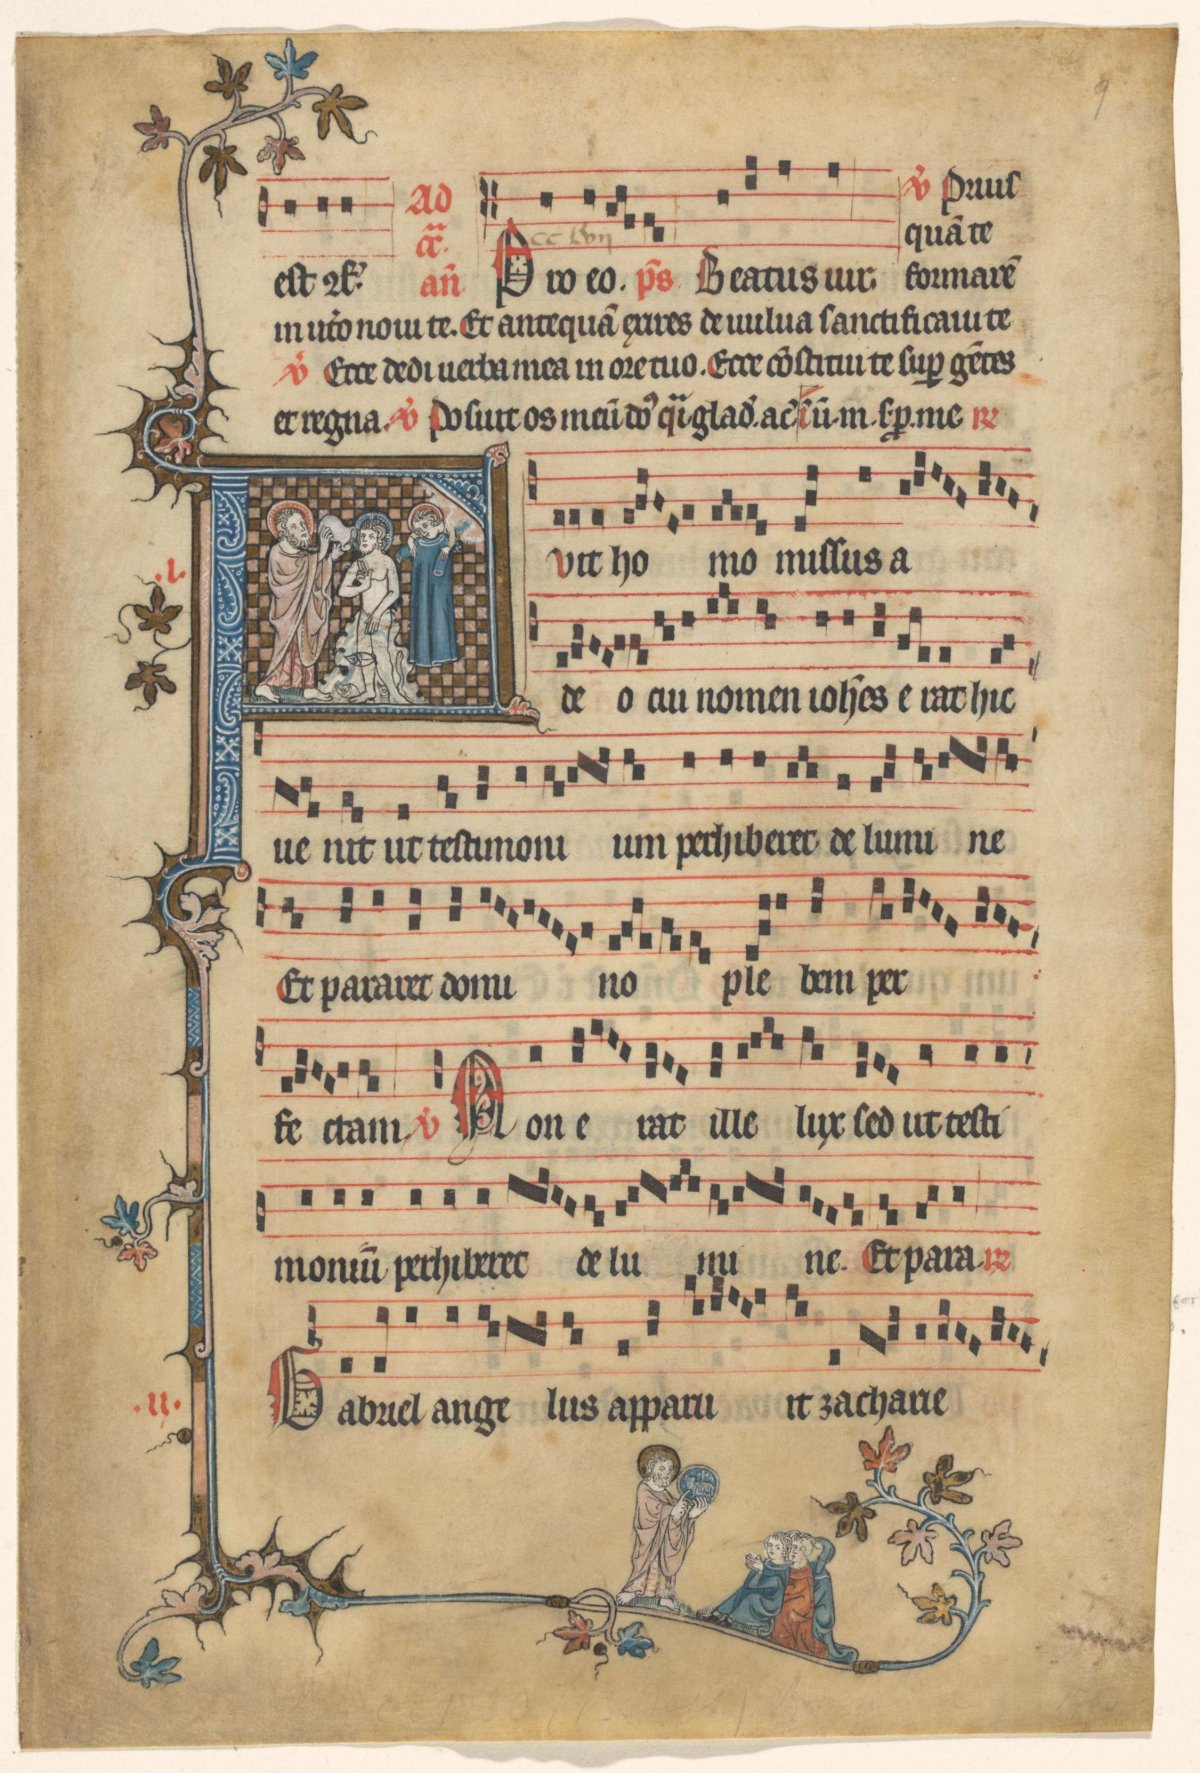 9
Ad v̄ Prius
cc lvii quā te
est. an̄ Pro eo. ps̄ Beatus uir. formarē
in ut̓o noui te. Et antequā exires de uulua sanctificaui te
v̄ Ecce dedi uerba mea in ore tuo. Ecce cōstitui te sup gētes
et regna. v̄ Posuit os meū
Fuit ho mo missus a
.I.
de o cui nomen ioh̄es e rat hic
ue nit ut testimoni um perhiberet de lumi ne
Et pararet domi no ple bem per
fe ctam v̄ Non e rat ille lux sed ut testi
moniū perhiberet de lu mi ne. Et para
.II.
Gabriel ange lus apparu it zacharie